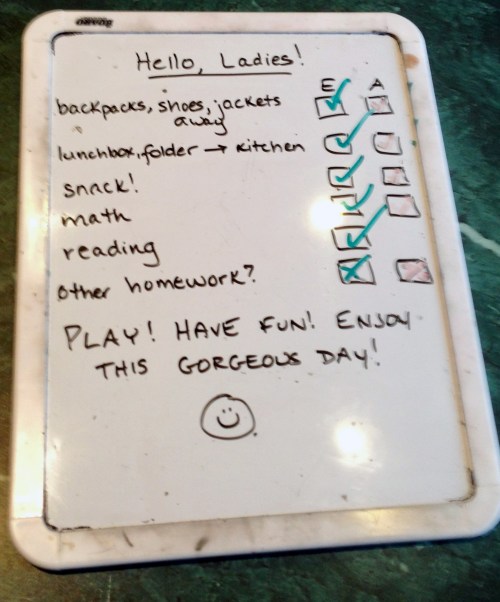 Hello, Ladies!
E A
backpacks, shoes, jackets
away
lunchbox, folder → kitchen
snack!
math
reading
other homework?
PLAY! HAVE FUN! ENJOY
THIS GORGEOUS DAY!